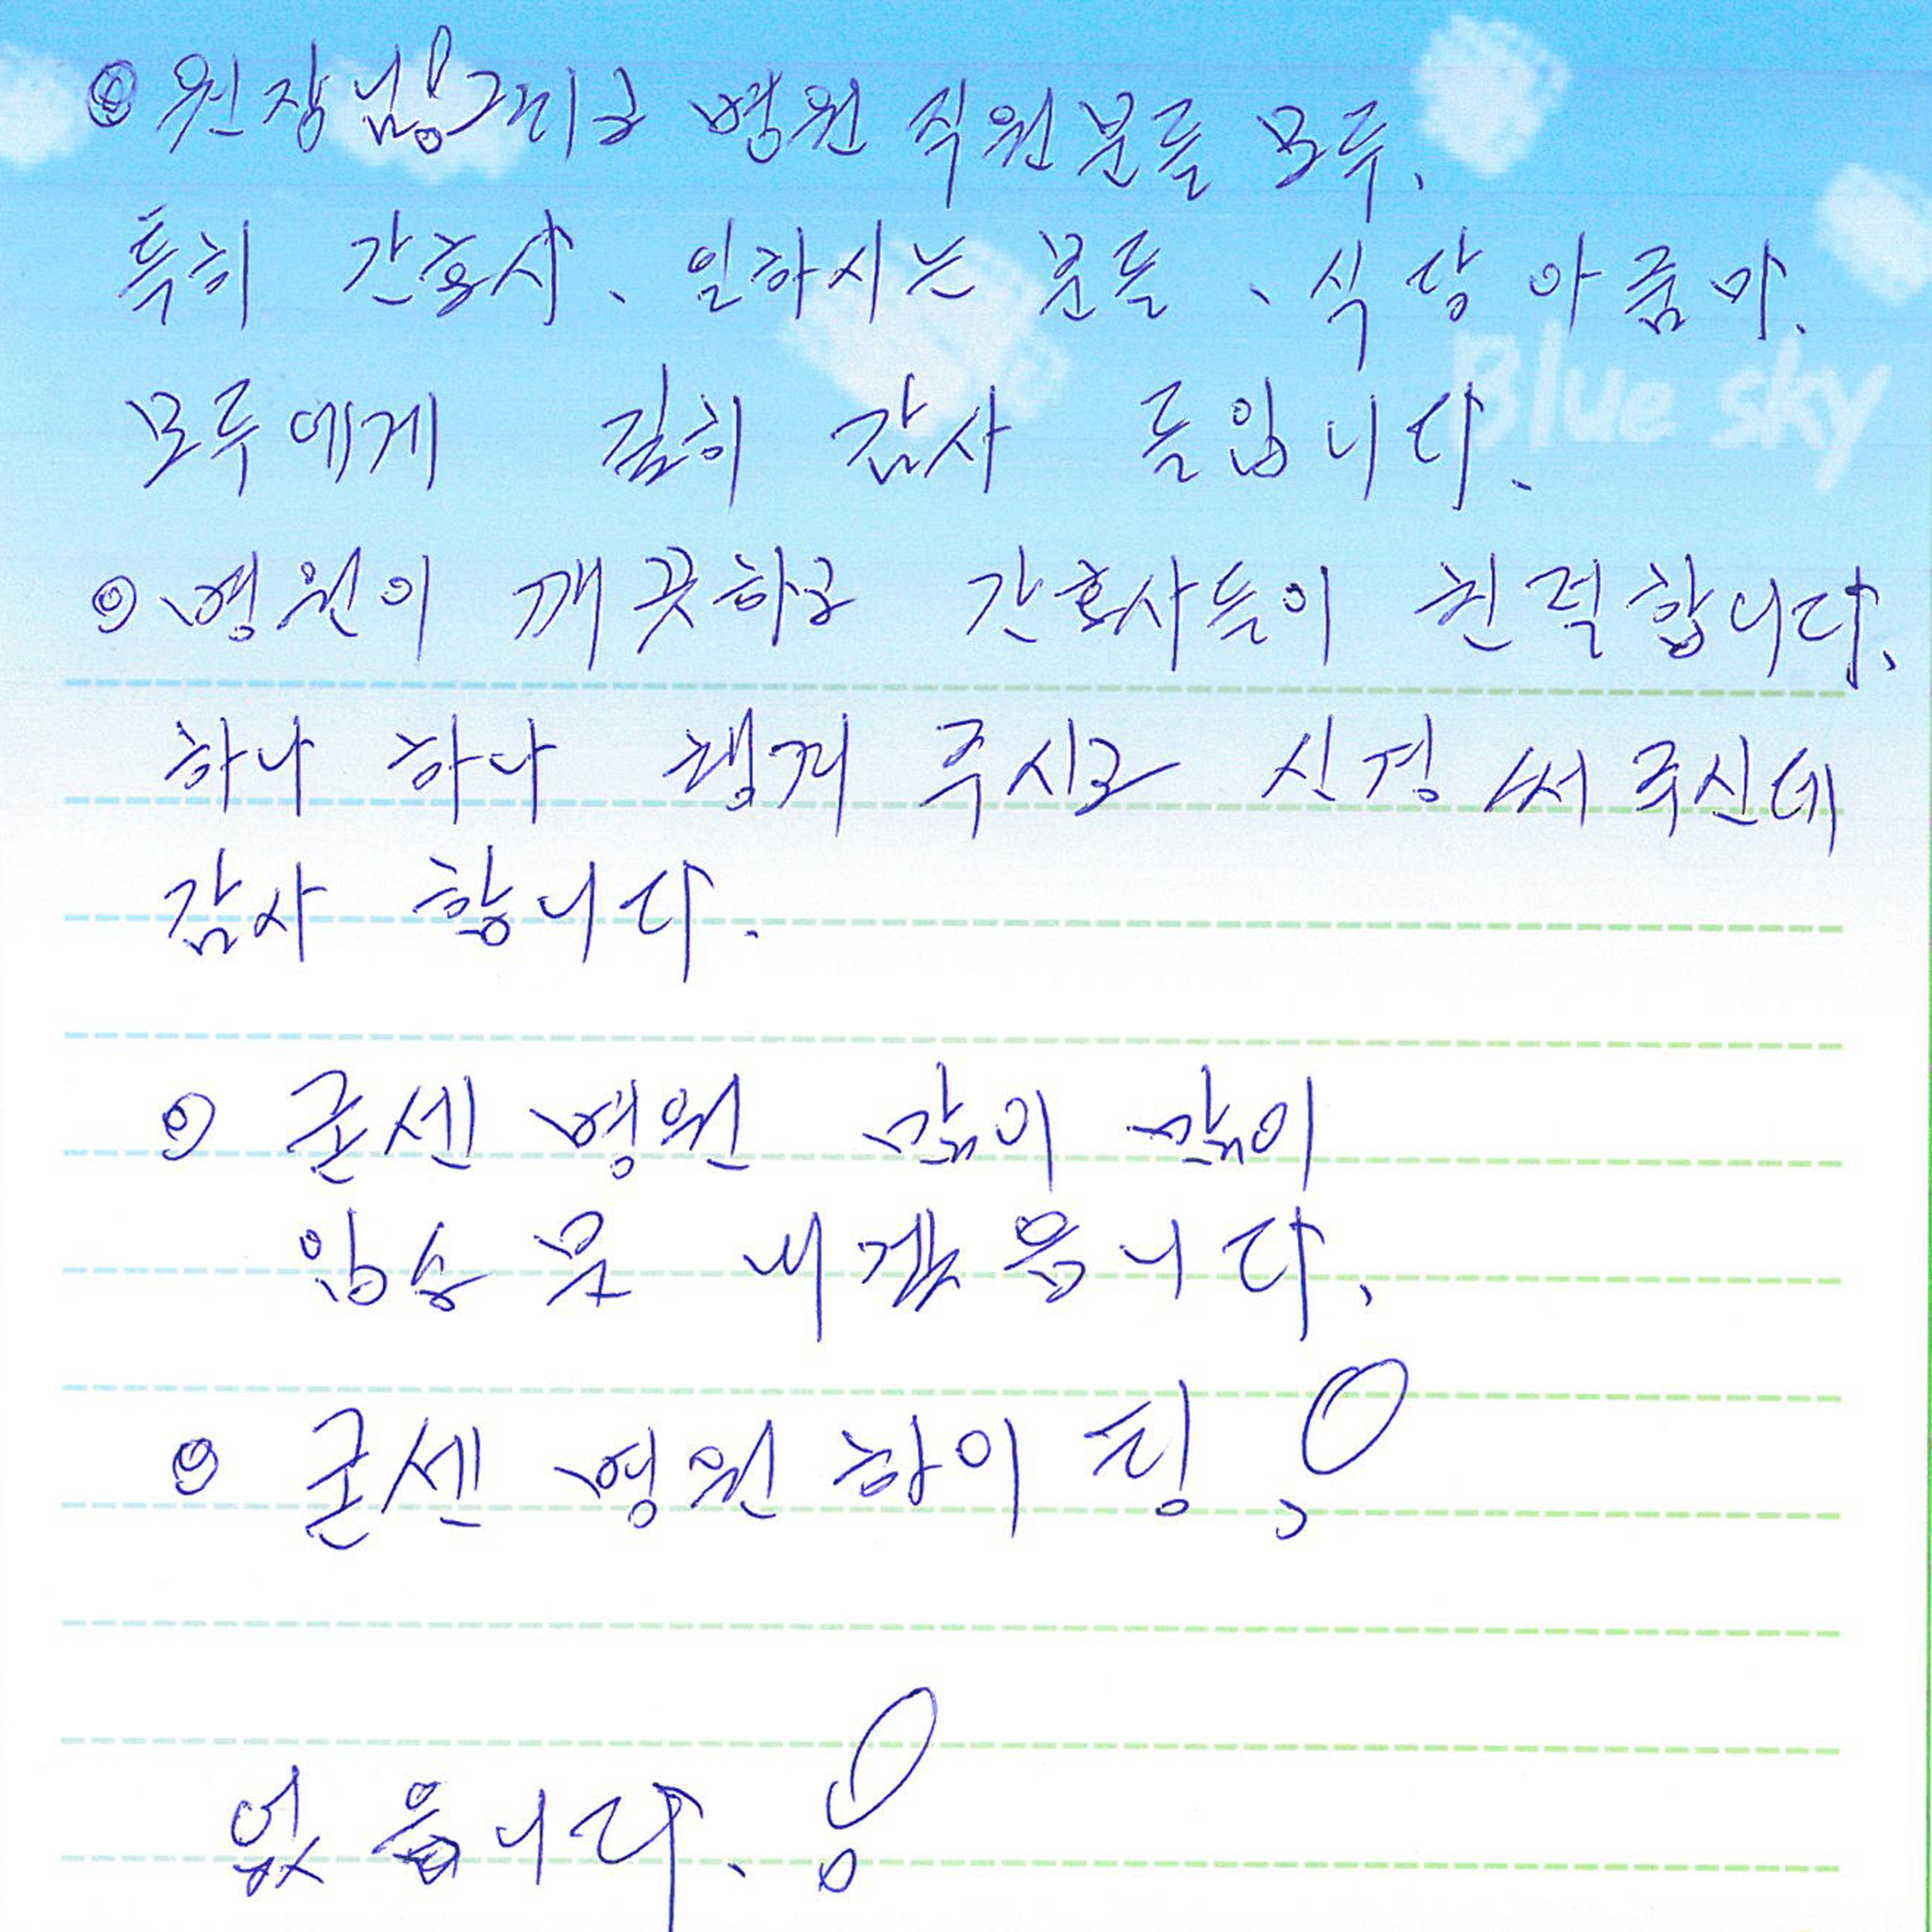 ◎ 원장님! 그리고 병원 직원분들 모두.
특히 간호사、일하시는 분들、식당아줌마.
Blue sky
모두에게 깊히 감사 들입니다.
◎ 병원이 깨끗하고 간호사들이 친절합니다.
하나 하나 챙겨 주시고 신경 써 주신데
감사 합니다.
◎ 굳센 병원 많이 많이
입소문 내겠읍니다.
◎ 굳센 병원 화이팅!
없읍니다. !